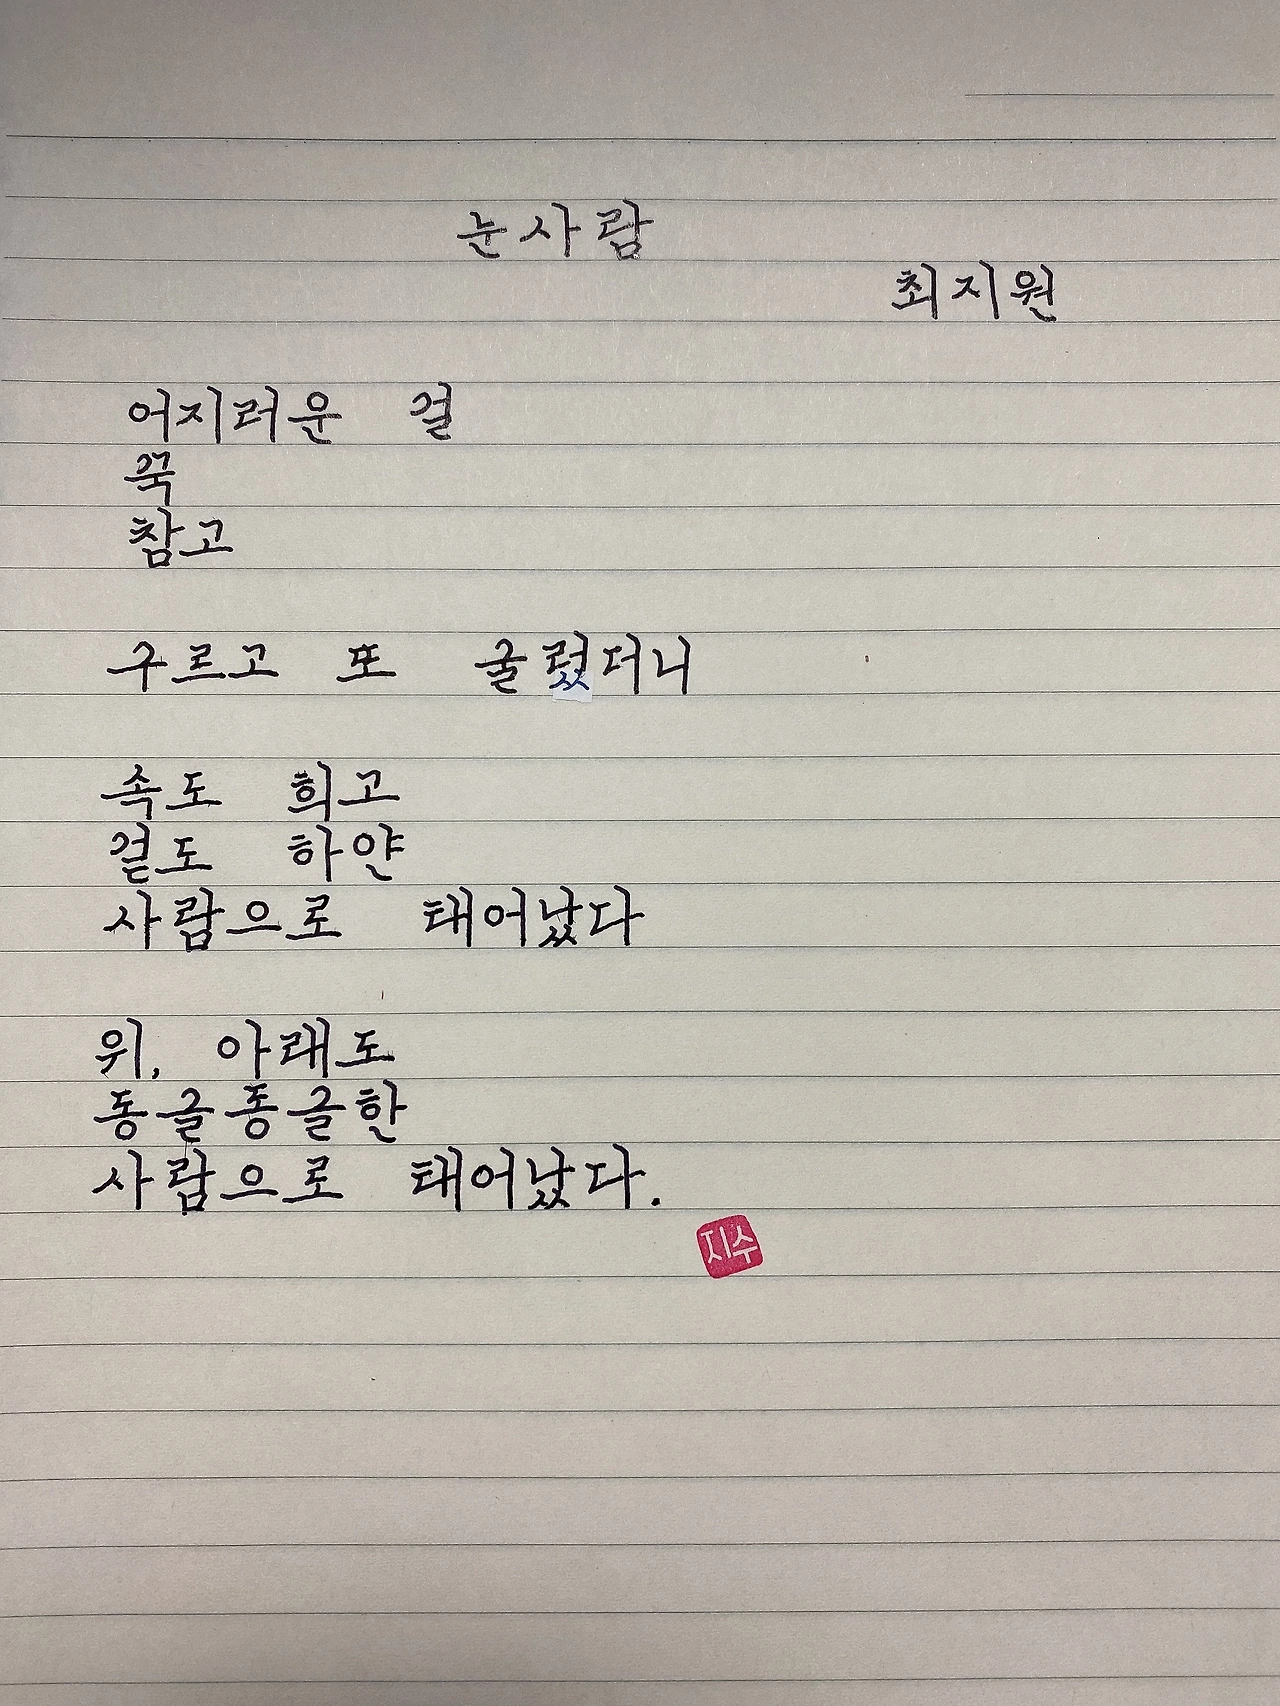 눈사람
최지원
어지러운 걸
꾹
참고
구르고 또 굴렀더니
속도 희고
겉도 하얀
사람으로 태어났다
위, 아래도
동글동글한
사람으로 태어났다.
지수